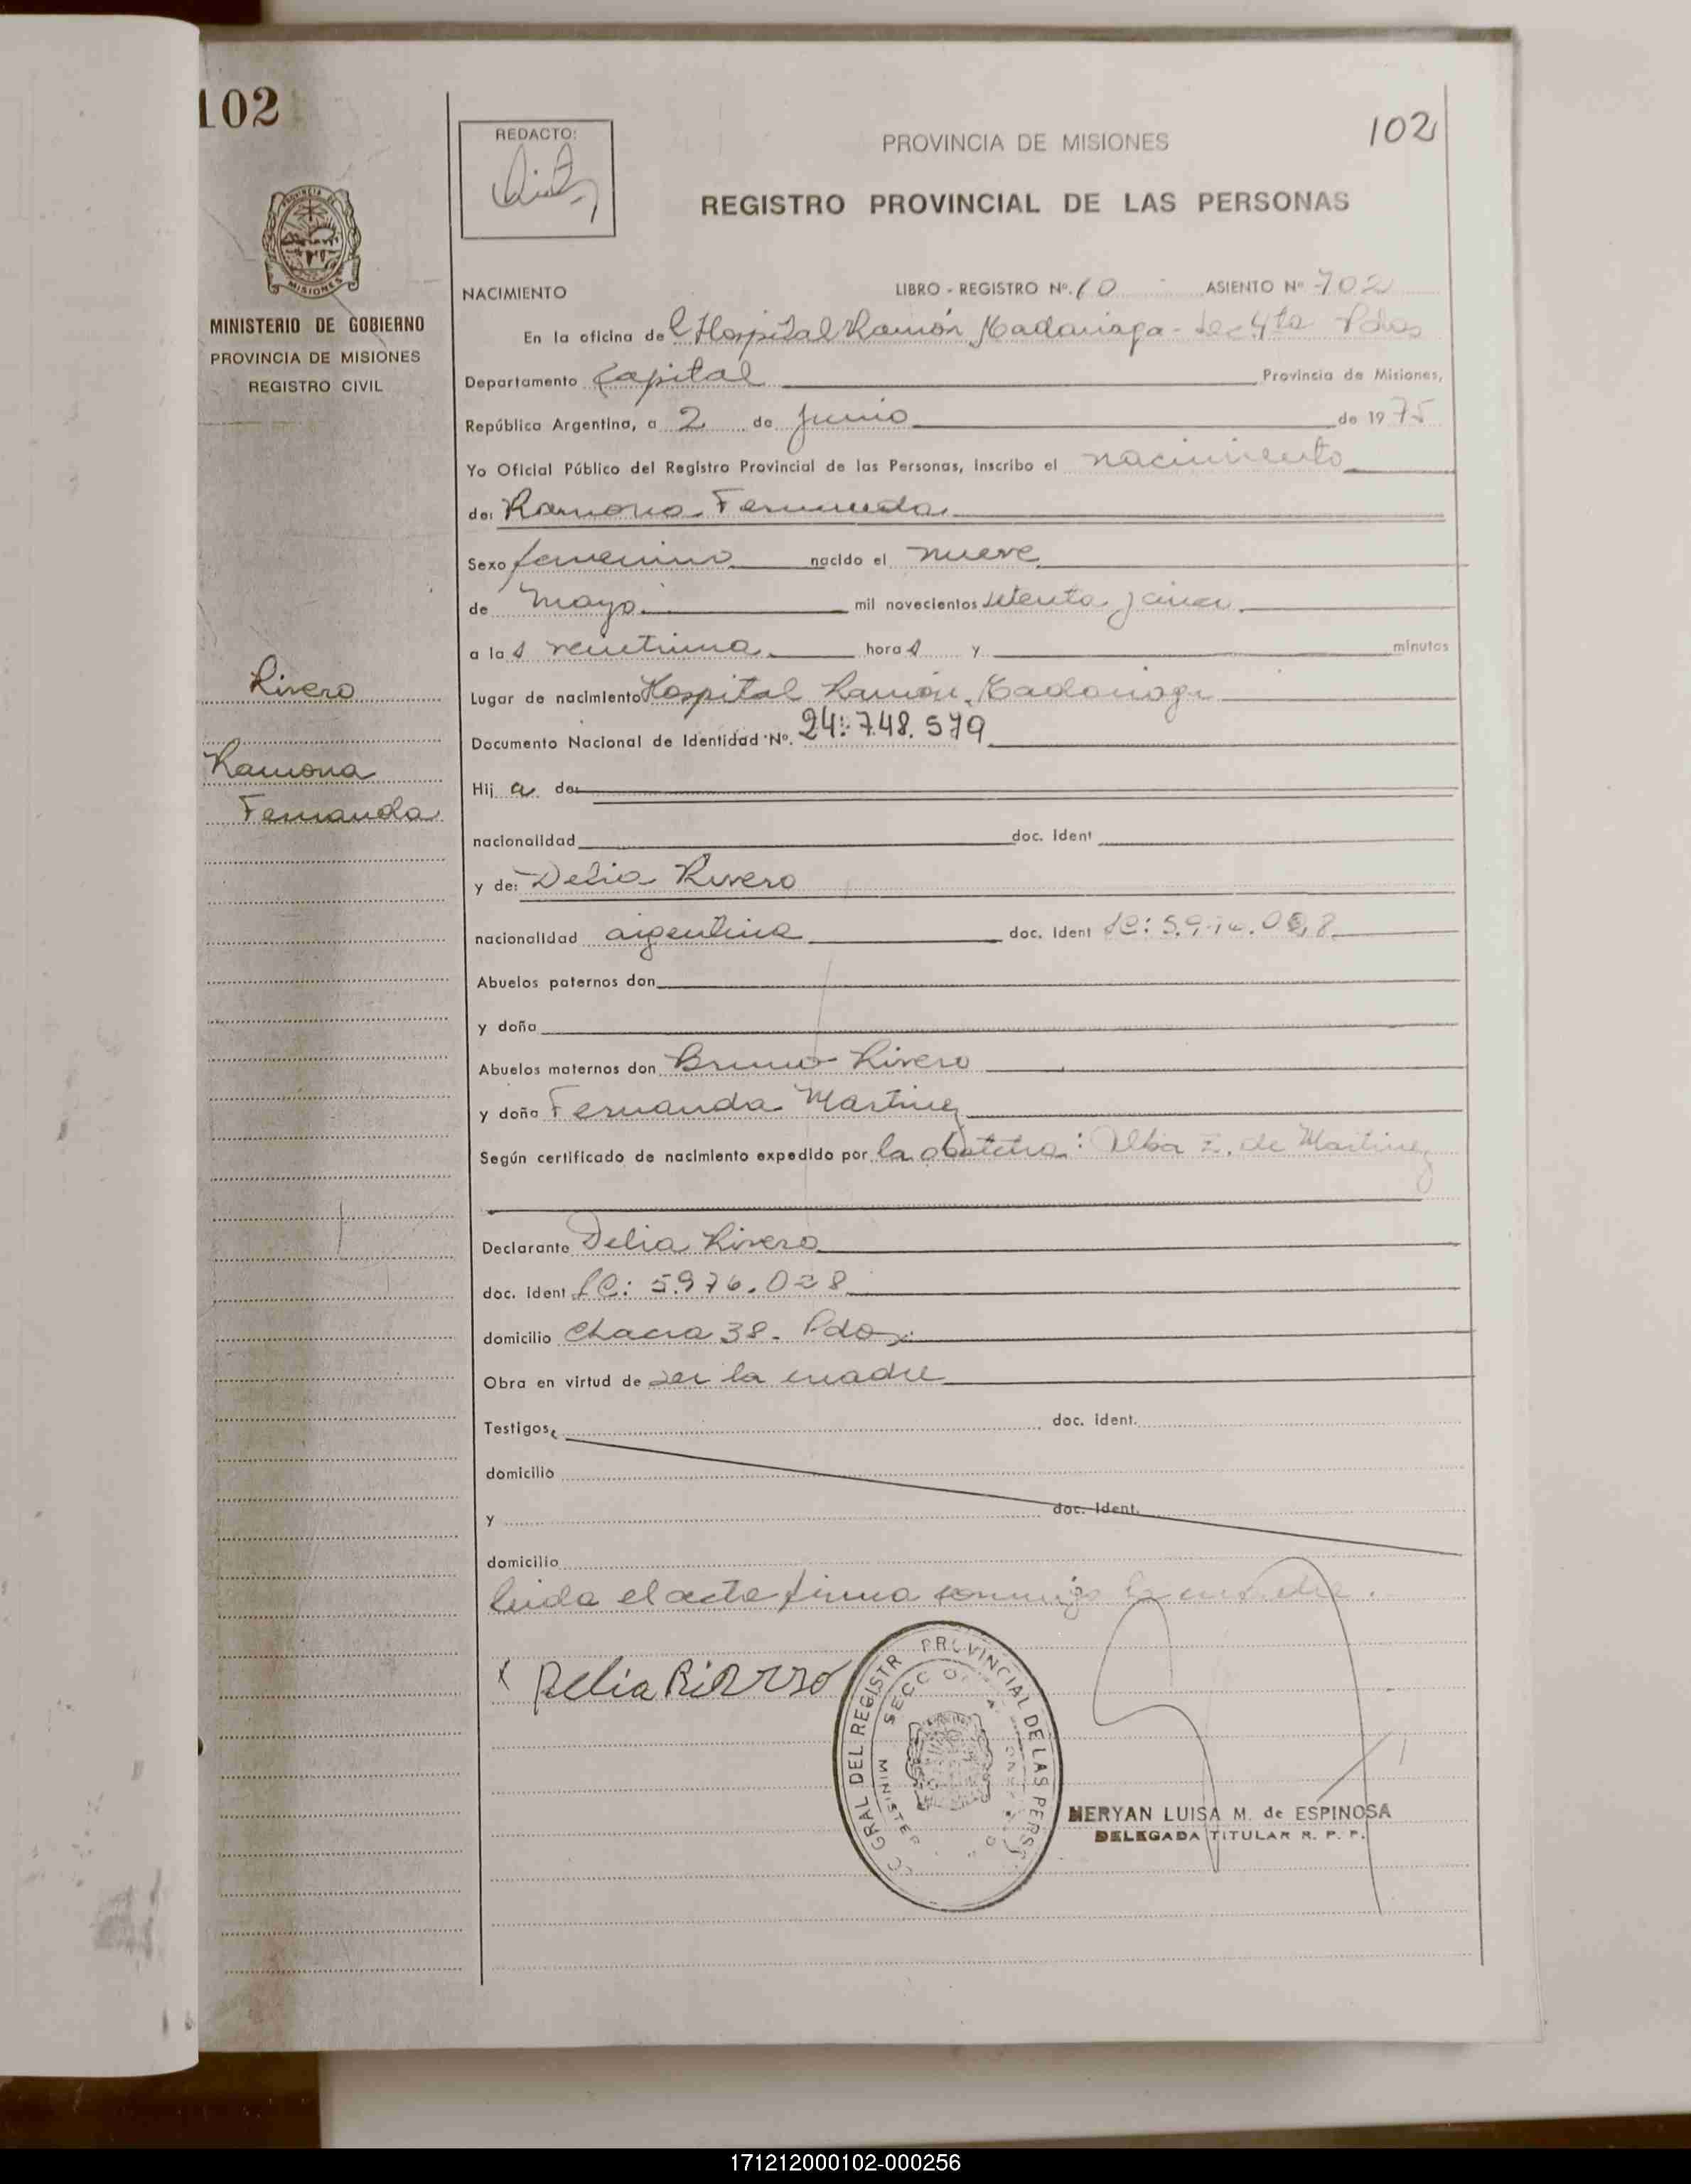 102
102
REDACTO:
PROVINCIA DE MISIONES
REGISTRO PROVINCIAL DE LAS PERSONAS
MINISTERIO DE GOBIERNO
PROVINCIA DE MISIONES
REGISTRO CIVIL
NACIMIENTO LIBRO - REGISTRO Nº. 10 ASIENTO Nº 702
En la oficina del Hospital Ramón Madariaga - Sec 4ta Pdas
Departamento Capital Provincia de Misiones,
República Argentina, a 2 de junio de 1975
Yo Oficial Público del Registro Provincial de las Personas, inscribo el nacimiento
de: Ramona Fernanda
Sexo femenino nacido el nueve
de mayo mil novecientos setenta y cinco
a las veintiuna horas y minutos
Rivero
Lugar de nacimiento Hospital Ramón Madariaga
Documento Nacional de Identidad Nº. 24.748.579
Ramona
Fernanda
Hija de
nacionalidad doc. ident
y de: Delia Rivero
nacionalidad argentina doc. ident LC:
Abuelos paternos don
y doña
Abuelos maternos don Bruno Rivero
y doña Fernanda Martinez
Según certificado de nacimiento expedido por la obstetra: Alba Z. de Martinez
Declarante Delia Rivero
doc. ident LC: 5.976.028
domicilio Chacra 38. Pdas.
Obra en virtud de ser la madre
Testigos doc. ident.
domicilio
y doc. ident.
domicilio
leida el acta firma conmigo la madre.
x Delia Rivero
GRAL DEL REGISTR PROVINCIAL DE LAS PERS
SECC
MINISTER
MERYAN LUISA M. de ESPINOSA
DELEGADA TITULAR R. P. P.
171212000102-000256